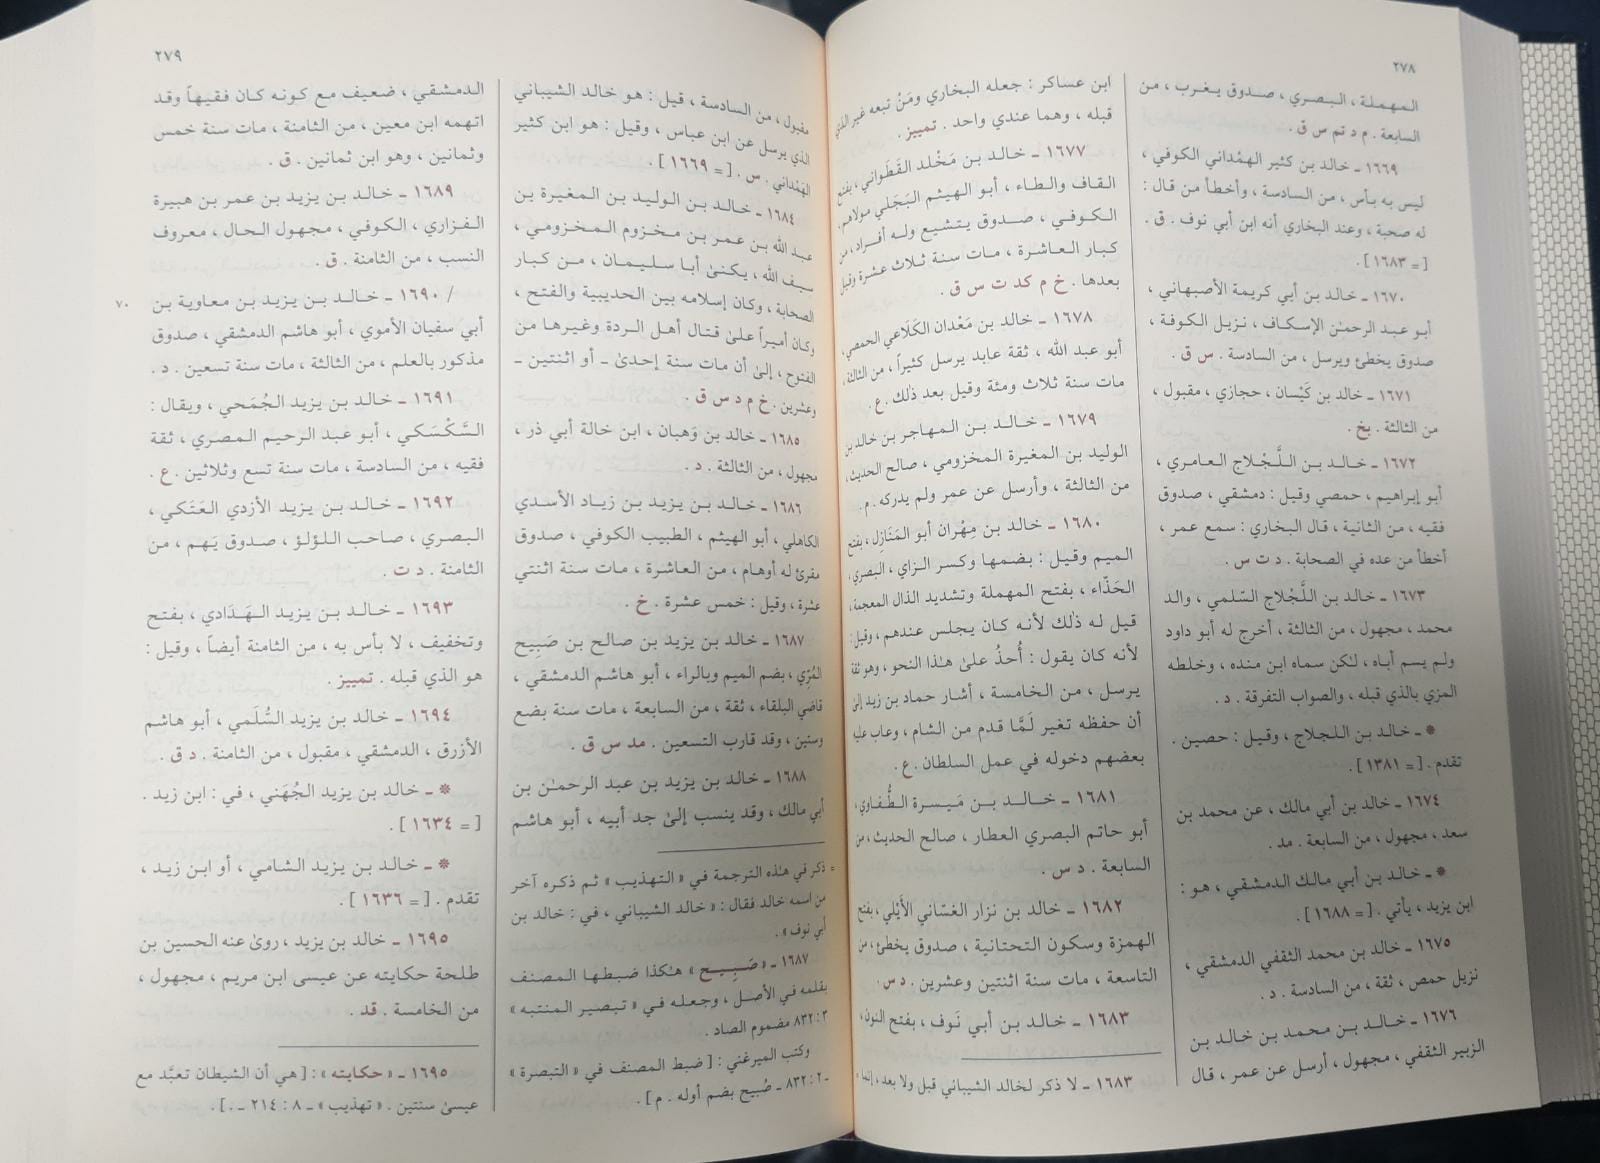 ٢٧٨
المهملة ، البصري ، صدوق يغرب ، من
السابعة . م د تم س ق .
١٦٦٩ ـ خالد بن كثير الهمْداني الكوفي ،
ليس به بأس ، من السادسة ، وأخطأ من قال :
له صحبة ، وعند البخاري أنه ابن أبي نوف . ق .
[ = ١٦٨٣ ] .
١٦٧٠ ـ خالد بن أبي كريمة الأصبهاني ،
أبو عبد الرحمٰن الإسكاف ، نزيل الكوفة ،
صدوق يخطئ ويرسل ، من السادسة . س ق .
١٦٧١ ـ خالد بن كَيْسان ، حجازي ، مقبول ،
من الثالثة . بخ .
١٦٧٢ ـ خالد بن اللَّجْلاج العامري ،
أبو إبراهيم ، حمصي وقيل : دمشقي ، صدوق
فقيه ، من الثانية ، قال البخاري : سمع عمر ،
أخطأ من عده في الصحابة . د ت س .
١٦٧٣ ـ خالد بن اللَّجْلاج السّلمي ، والد
محمد ، مجهول ، من الثالثة ، أخرج له أبو داود
ولم يسم أباه ، لكن سماه ابن منده ، وخلطه
المزي بالذي قبله ، والصواب التفرقة . د .
* ـ خالد بن اللجلاج ، وقيل : حصين .
تقدم . [ = ١٣٨١ ] .
١٦٧٤ ـ خالد بن أبي مالك ، عن محمد بن
سعد ، مجهول ، من السابعة . مد .
* ـ خالد بن أبي مالك الدمشقي ، هو :
ابن يزيد ، يأتي . [ = ١٦٨٨ ] .
١٦٧٥ ـ خالد بن محمد الثقفي الدمشقي ،
نزيل حمص ، ثقة ، من السادسة . د .
١٦٧٦ ـ خالد بن محمد بن خالد بن
الزبير الثقفي ، مجهول ، أرسل عن عمر ، قال
ابن عساكر : جعله البخاري ومَنْ تبعه غير الذي
قبله ، وهما عندي واحد . تمييز .
١٦٧٧ ـ خالد بن مَخْلد القَطَواني ، بفتح
القاف والطاء ، أبو الهيثم البَجَلي مولاهم ،
الكوفي ، صدوق يتشيع وله أفراد ، من
كبار العاشرة ، مات سنة ثلاث عشرة وقيل
بعدها . خ م كد ت س ق .
١٦٧٨ ـ خالد بن مَعْدان الكَلَاعي الحمصي ،
أبو عبد الله ، ثقة عابد يرسل كثيراً ، من الثالثة ،
مات سنة ثلاث ومئة وقيل بعد ذلك . ع .
١٦٧٩ ـ خالد بن المهاجر بن خالد بن
الوليد بن المغيرة المخزومي ، صالح الحديث ،
من الثالثة ، وأرسل عن عمر ولم يدركه . م .
١٦٨٠ ـ خالد بن مِهْران أبو المَنَازل ، بفتح
الميم وقيل : بضمها وكسر الزاي ، البصري ،
الحَذّاء ، بفتح المهملة وتشديد الذال المعجمة ،
قيل له ذلك لأنه كان يجلس عندهم ، وقيل :
لأنه كان يقول : أُحذُ علىٰ هٰذا النحو ، وهو ثقة
يرسل ، من الخامسة ، أشار حماد بن زيد إلىٰ
أن حفظه تغير لَمَّا قدم من الشام ، وعاب عليه
بعضهم دخوله في عمل السلطان . ع .
١٦٨١ ـ خالد بن مَيسرة الطُّفاوي ،
أبو حاتم البصري العطار ، صالح الحديث ، من
السابعة . د س .
١٦٨٢ ـ خالد بن نزار الغسّاني الأَيْلي ، بفتح
الهمزة وسكون التحتانية ، صدوق يخطئ ، من
التاسعة ، مات سنة اثنتين وعشرين . د س .
١٦٨٣ ـ خالد بن أبي نَوف ، بفتح النون ،
١٦٨٣ ـ لا ذكر لخالد الشيباني قبل ولا بعد ، إنما =
٢٧٩
مقبول ، من السادسة ، قيل : هو خالد الشيباني
الذي يرسل عن ابن عباس ، وقيل : هو ابن كثير
الهَمْداني . س . [ = ١٦٦٩ ] .
١٦٨٤ ـ خالد بن الوليد بن المغيرة بن
عبد الله بن عمر بن مخزوم المخزومي ،
سيف الله ، يكنىٰ أبا سليمان ، من كبار
الصحابة ، وكان إسلامه بين الحديبية والفتح ،
وكان أميراً علىٰ قتال أهل الردة وغيرها من
الفتوح ، إلىٰ أن مات سنة إحدىٰ ـ أو اثنتين ـ
وعشرين . خ م د س ق .
١٦٨٥ ـ خالد بن وَهبان ، ابن خالة أبي ذر ،
مجهول ، من الثالثة . د .
١٦٨٦ ـ خالد بن يزيد بن زياد الأسدي
الكاهلي ، أبو الهيثم ، الطبيب الكوفي ، صدوق
مقرئ له أوهام ، من العاشرة ، مات سنة اثنتي
عشرة ، وقيل : خمس عشرة . خ .
١٦٨٧ ـ خالد بن يزيد بن صالح بن صَبِيح
المُرّي ، بضم الميم وبالراء ، أبو هاشم الدمشقي ،
قاضي البلقاء ، ثقة ، من السابعة ، مات سنة بضع
وستين ، وقد قارب التسعين . مد س ق .
١٦٨٨ ـ خالد بن يزيد بن عبد الرحمٰن بن
أبي مالك ، وقد ينسب إلىٰ جد أبيه ، أبو هاشم
= ذكر في هٰذه الترجمة في « التهذيب » ثم ذكره آخر
من اسمه خالد فقال : « خالد الشيباني ، في : خالد بن
أبي نوف » .
١٦٨٧ ـ « صَبِيح » هٰكذا ضبطها المصنف
بقلمه في الأصل ، وجعله في « تبصير المنتبه »
٣ : ٨٣٢ مضموم الصاد .
وكتب الميرغني : [ ضبط المصنف في « التبصرة »
ـ ٢ : ٨٣٢ ـ صُبيح بضم أوله . م ] .
الدمشقي ، ضعيف مع كونه كان فقيهاً وقد
اتهمه ابن معين ، من الثامنة ، مات سنة خمس
وثمانين ، وهو ابن ثمانين . ق .
١٦٨٩ ـ خالد بن يزيد بن عمر بن هبيرة
الفزاري ، الكوفي ، مجهول الحال ، معروف
النسب ، من الثامنة . ق .
/ ١٦٩٠ ـ خالد بن يزيد بن معاوية بن ٧٠
أبي سفيان الأموي ، أبو هاشم الدمشقي ، صدوق
مذكور بالعلم ، من الثالثة ، مات سنة تسعين . د .
١٦٩١ ـ خالد بن يزيد الجُمَحي ، ويقال :
السَّكْسَكي ، أبو عبد الرحيم المصري ، ثقة
فقيه ، من السادسة ، مات سنة تسع وثلاثين . ع .
١٦٩٢ ـ خالد بن يزيد الأزدي العَتَكي ،
البصري ، صاحب اللؤلؤ ، صدوق يَهم ، من
الثامنة . د ت .
١٦٩٣ ـ خالد بن يزيد الهَدَادي ، بفتح
وتخفيف ، لا بأس به ، من الثامنة أيضاً ، وقيل :
هو الذي قبله . تمييز .
١٦٩٤ ـ خالد بن يزيد السُّلَمي ، أبو هاشم
الأزرق ، الدمشقي ، مقبول ، من الثامنة . د ق .
* ـ خالد بن يزيد الجُهَني ، في : ابن زيد .
[ = ١٦٣٤ ] .
* ـ خالد بن يزيد الشامي ، أو ابن زيد ،
تقدم . [ = ١٦٣٦ ] .
١٦٩٥ ـ خالد بن يزيد ، روىٰ عنه الحسين بن
طلحة حكايته عن عيسى ابن مريم ، مجهول ،
من الخامسة . قد .
١٦٩٥ ـ « حكايته » : [ هي أن الشيطان تعبَّد مع
عيسىٰ سنتين . « تهذيب » ـ ٨ : ٢١٤ ـ . ] .